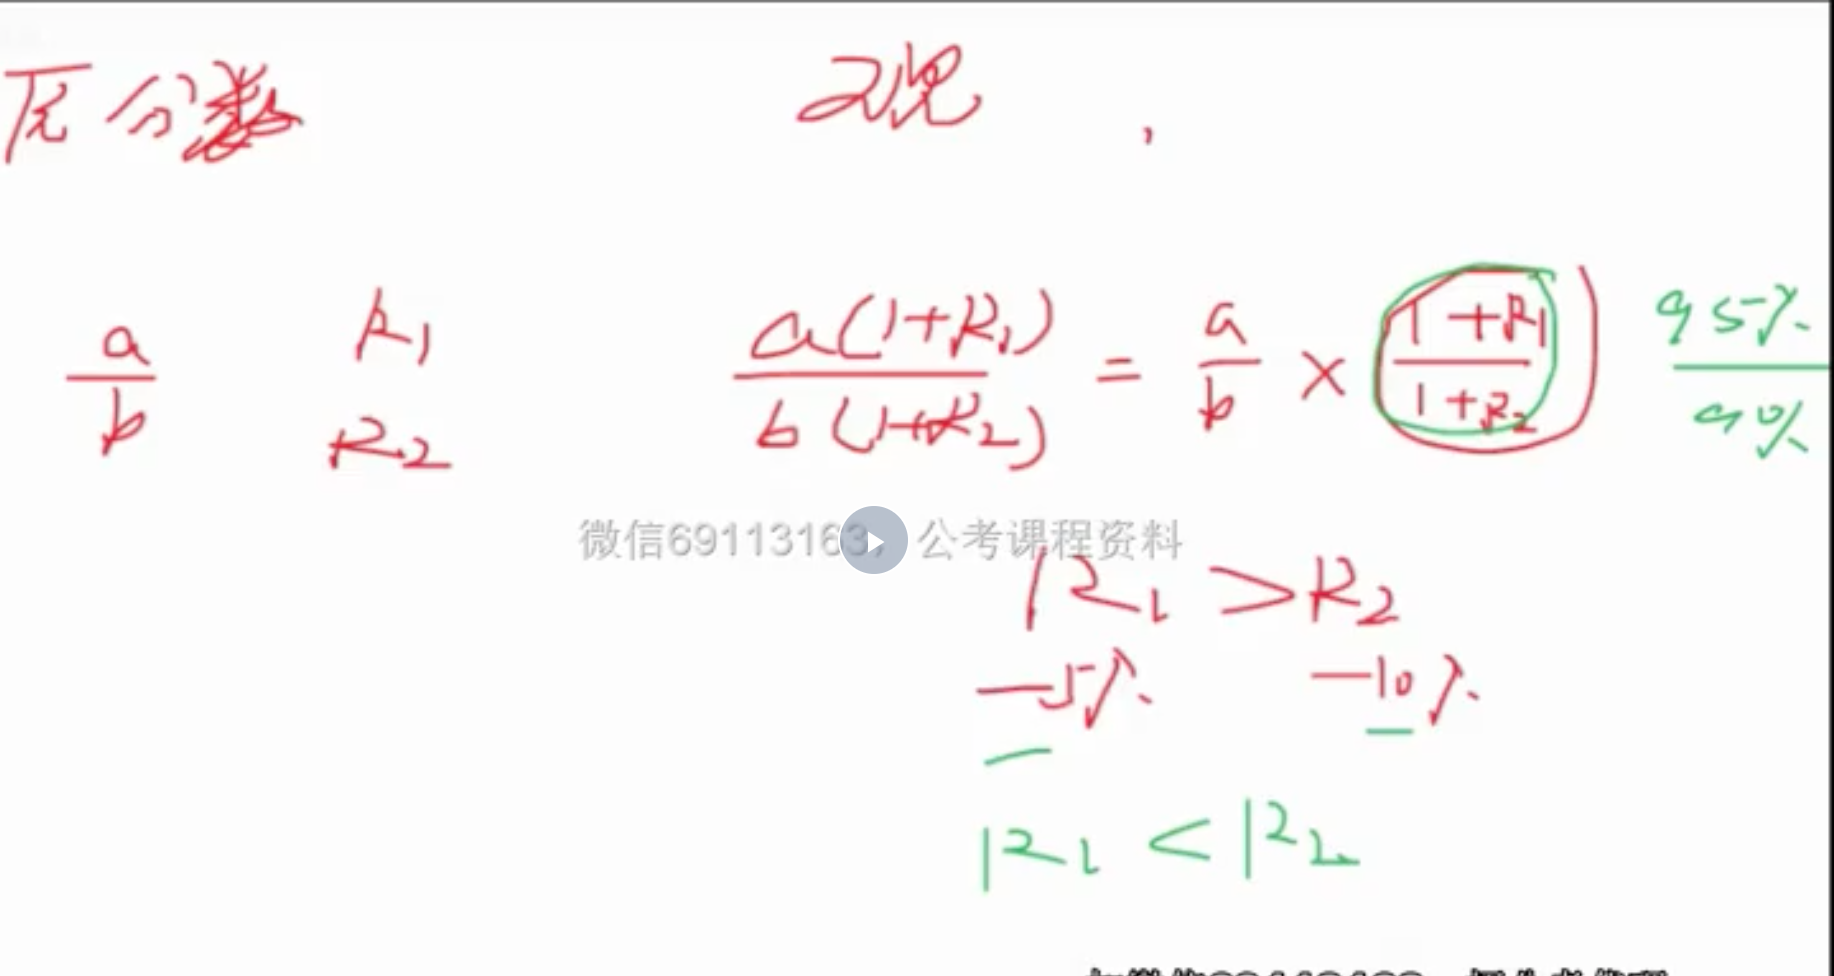 原分数 现
a/b R1 R2 a(1+R1)/b(1+R2) = a/b × (1+R1)/(1+R2) 95%/90%
微信69113163，公考课程资料
R1 > R2
-5% -10%
R1 < R2